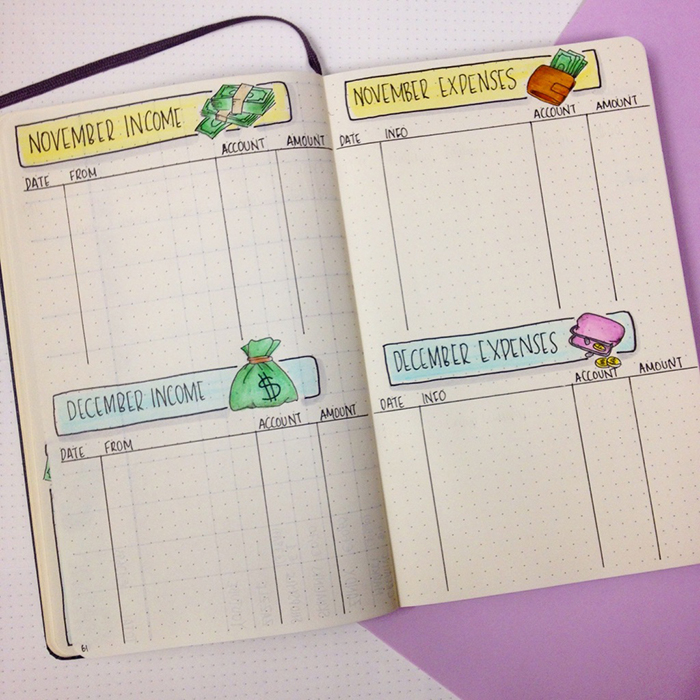 NOVEMBER INCOME
DATE FROM ACCOUNT AMOUNT
DECEMBER INCOME
$
DATE FROM ACCOUNT AMOUNT
61
NOVEMBER EXPENSES
DATE INFO ACCOUNT AMOUNT
DECEMBER EXPENSES
DATE INFO ACCOUNT AMOUNT